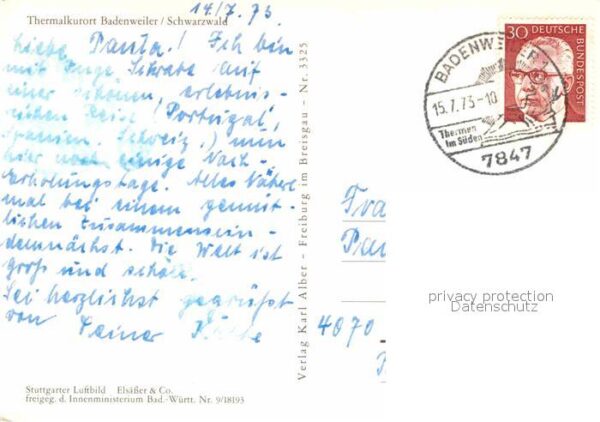 14./7.73
Thermalkurort Badenweiler / Schwarzwald
Liebe Paula! Ich bin
mit Inge Schrade auf
einer schönen, erlebnis-
reichen Reise (Portugal,
Spanien, Schweiz,) nun
hier noch einige Nach-
Erholungstage. Alles Nähere
mal bei einem gemüt-
lichen Zusammensein
demnächst. Die Welt ist
groß und schön.
Sei herzlichst gegrüßt
von Deiner
Verlag Karl Alber - Freiburg im Breisgau - Nr. 3325
30 DEUTSCHE BUNDESPOST
BADENWEILER
15.7.73-10
Thermen
im Süden
7847
4070
privacy protection
Datenschutz
Stuttgarter Luftbild Elsäßer & Co.
freigeg. d. Innenministerium Bad.-Württ. Nr. 9/18193